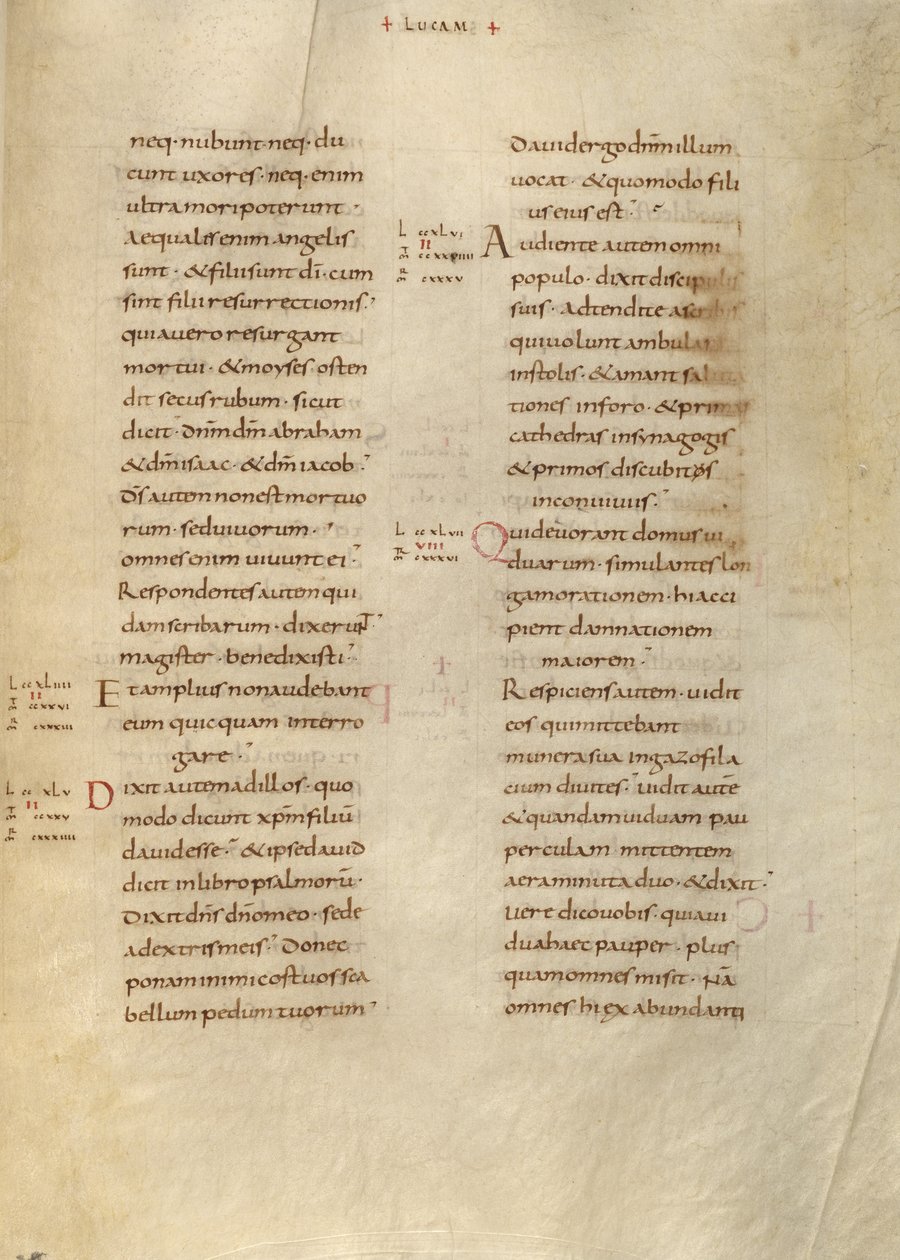 + LUCAM +
neq· nubunt· neq· du
cunt uxores· neq· enim
ultra mori poterunt·
Aequales enim angelis
sunt· & filii sunt dī· cum
sint filii resurrectionis·
quia uero resurgant
mortui· & moyses osten
dit secus rubum· sicut
dicit· dnm dm abraham
& dm isaac· & dm iacob·
Ds autem non est mortuo
rum· sed uiuorum·
omnes enim uiuunt ei·
Respondentes autem qui
dam scribarum· dixerunt·
magister· benedixisti·
L ccxLiiii
II
MT ccxxvi
MR cxxxiii
Et amplius non audebant
eum quicquam interro
gare·
L ccxLv
II
MT ccxxv
MR cxxxiiii
Dixit autem ad illos· quo
modo dicunt xpm filiū
dauid esse· & ipse dauid
dicit in libro psalmorū·
Dixit dns dno meo· sede
a dextris meis· Donec
ponam inimicos tuos sca
bellum pedum tuorum
Dauid ergo dnm illum
uocat· & quomodo fili
us eius est·
L ccxLvi
II
MT ccxxviiii
MR cxxxv
Audiente autem omni
populo· dixit discipulis
suis· Adtendite a scribis
qui uolunt ambulare
in stolis· & amant saluta
tiones in foro· & primas
cathedras in synagogis
& primos discubitos
in conuiuiis·
L ccxLvii
VIII
MR cxxxvi
Qui deuorant domus ui
duarum· simulantes lon
gam orationem· hi acci
pient damnationem
maiorem·
Respiciens autem· uidit
eos qui mittebant
munera sua in gazofila
cium diuites· uidit autē
& quandam uiduam pau
perculam mittentem
aera minuta duo· & dixit·
Uere dico uobis· quia ui
dua haec pauper· plus
quam omnes misit· Nā
omnes hi ex abundanti